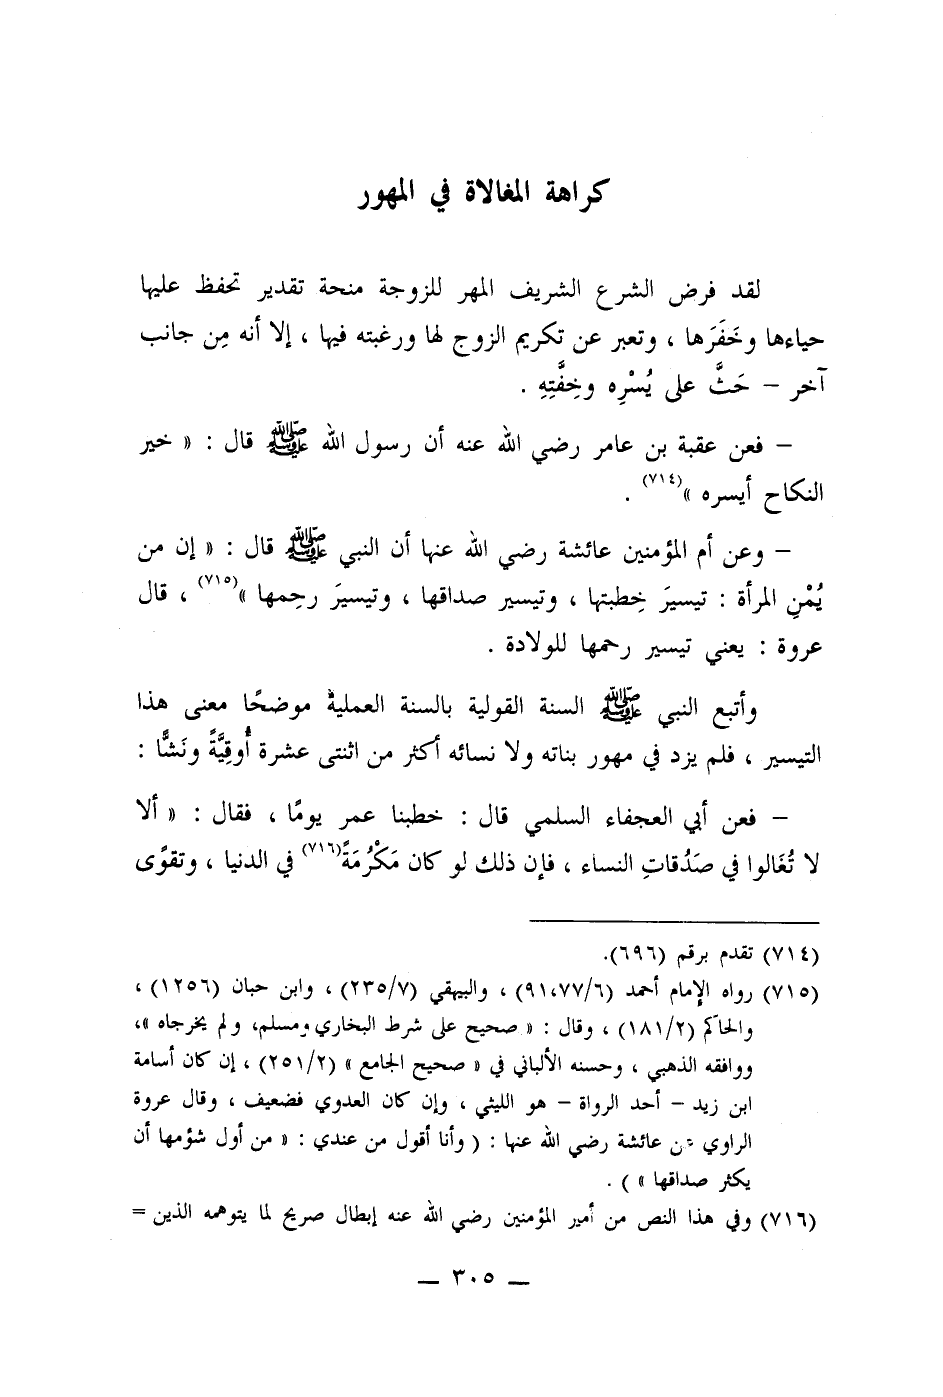 كراهة المغالاة في المهور
لقد فرض الشرع الشريف المهر للزوجة منحة تقدير تحفظ عليها
حياءها وخَفَرَها ، وتعبر عن تكريم الزوج لها ورغبته فيها ، إلا أنه مِن جانب
آخر – حَثَّ على يُسْرِه وخِفَّتِهِ .
– فعن عقبة بن عامر رضي الله عنه أن رسول الله ﷺ قال : « خير
النكاح أيسره »(٧١٤) .
– وعن أم المؤمنين عائشة رضي الله عنها أن النبي ﷺ قال : « إن من
يُمْنِ المرأة : تيسيرَ خِطبتها ، وتيسير صداقها ، وتيسيرَ رحِمها »(٧١٥) ، قال
عروة : يعني تيسير رحمها للولادة .
وأتبع النبي ﷺ السنة القولية بالسنة العملية موضحًا معنى هذا
التيسير ، فلم يزد في مهور بناته ولا نسائه أكثر من اثنتى عشرة أُوقِيَّةً ونَشًّا :
– فعن أبي العجفاء السلمي قال : خطبنا عمر يومًا ، فقال : « ألا
لا تُغَالوا في صَدُقاتِ النساء ، فإن ذلك لو كان مَكْرُمَةً(٧١٦) في الدنيا ، وتقوًى
(٧١٤) تقدم برقم (٦٩٦).
(٧١٥) رواه الإمام أحمد (٩١،٧٧/٦) ، والبيهقي (٢٣٥/٧) ، وابن حبان (١٢٥٦) ،
والحاكم (١٨١/٢) ، وقال : « صحيح على شرط البخاري ومسلم، ولم يخرجاه »،
ووافقه الذهبي ، وحسنه الألباني في « صحيح الجامع » (٢٥١/٢) ، إن كان أسامة
ابن زيد – أحد الرواة – هو الليثي ، وإن كان العدوي فضعيف ، وقال عروة
الراوي عن عائشة رضي الله عنها : ( وأنا أقول من عندي : « من أول شؤمها أن
يكثر صداقها » ) .
(٧١٦) وفي هذا النص من أمير المؤمنين رضي الله عنه إبطال صريح لما يتوهمه الذين =
— ٣٠٥ —